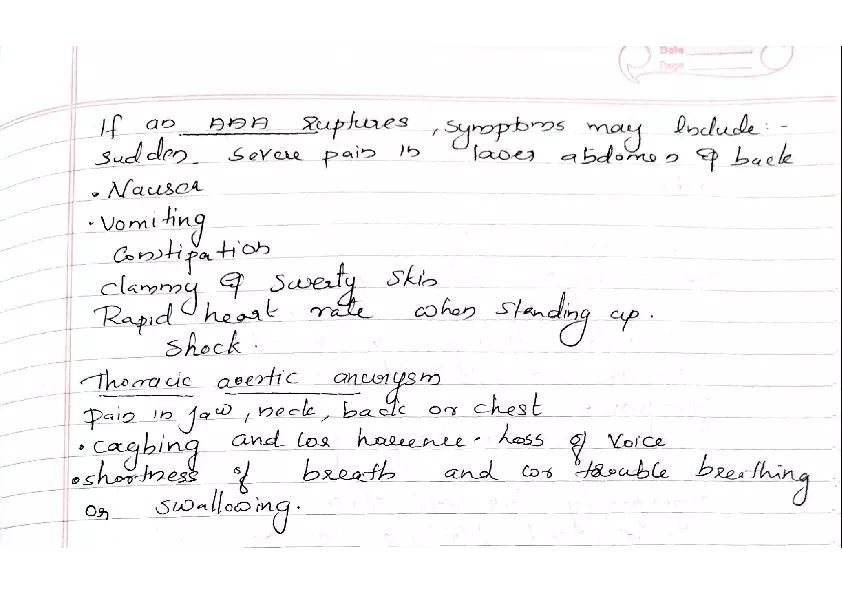 Date
Page
If an AAA Ruptures, symptoms may Include:-
sudden severe pain in lower abdomen & back
• Nausea
• Vomiting
Constipation
clammy & sweaty skin
Rapid heart rate when standing up.
Shock.
Thoracic aortic aneurysm
Pain in jaw, neck, back or chest
• cagbing and lor - Loss of Voice
• shortness of breath and lor trouble breathing
or swallowing.